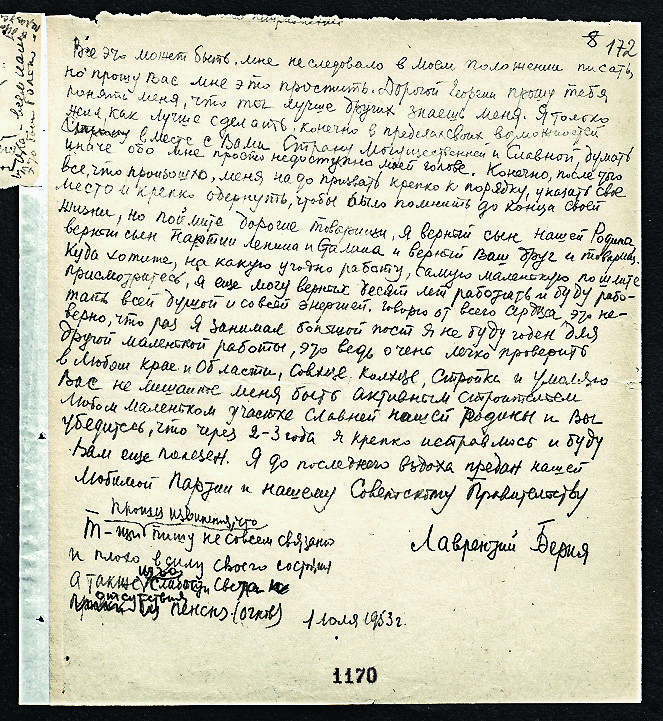 8 172
Все это может быть, мне не следовало в моем положении писать,
но прошу Вас мне это простить. Дорогой Георгий прошу тебя
понять меня, что ты лучше других знаешь меня. Я только
жил, как лучше сделать, конечно в пределах своих возможностей
вместе с Вами Страну Могущественной и Славной, думать
иначе обо мне просто недоступно моей голове. Конечно, после того
все, что произошло, меня надо призвать крепко к порядку, указать свое
место и крепко одернуть, чтобы было помнить до конца своей
жизни, но поймите дорогие товарищи, я верный сын нашей Родины,
верный сын партии Ленина и Сталина и верный Ваш друг и товарищ.
Куда хотите, на какую угодно работу, самую маленькую пошлите
присмотритесь, я еще могу верных десять лет работать и буду рабо-
тать всей душой и совей энергией. Говорю от всего сердца, это не-
верно, что раз я занимал большой пост я не буду годен для
другой маленкой работы, это ведь очень легко проверить
в любом крае и области, Совхозе, Колхозе, Стройке и Умоляю
Вас не лишаите меня быть активным строителем
любом маленком участке славней нашей Родины и Вы
убедитесь, что через 2-3 года я крепко исправлюсь и буду
Вам еще полезен. Я до последнего вздоха предан нашей
любимой Партии и нашему Советскому Правительству
Прошу извинения, что
Т-щи пишу не совсем связано
и плохо в силу своего состояния
Лаврентий Берия
а также из за слабости света и
отсутствия пенснэ (очков)
1 юля 1953 г.
1170